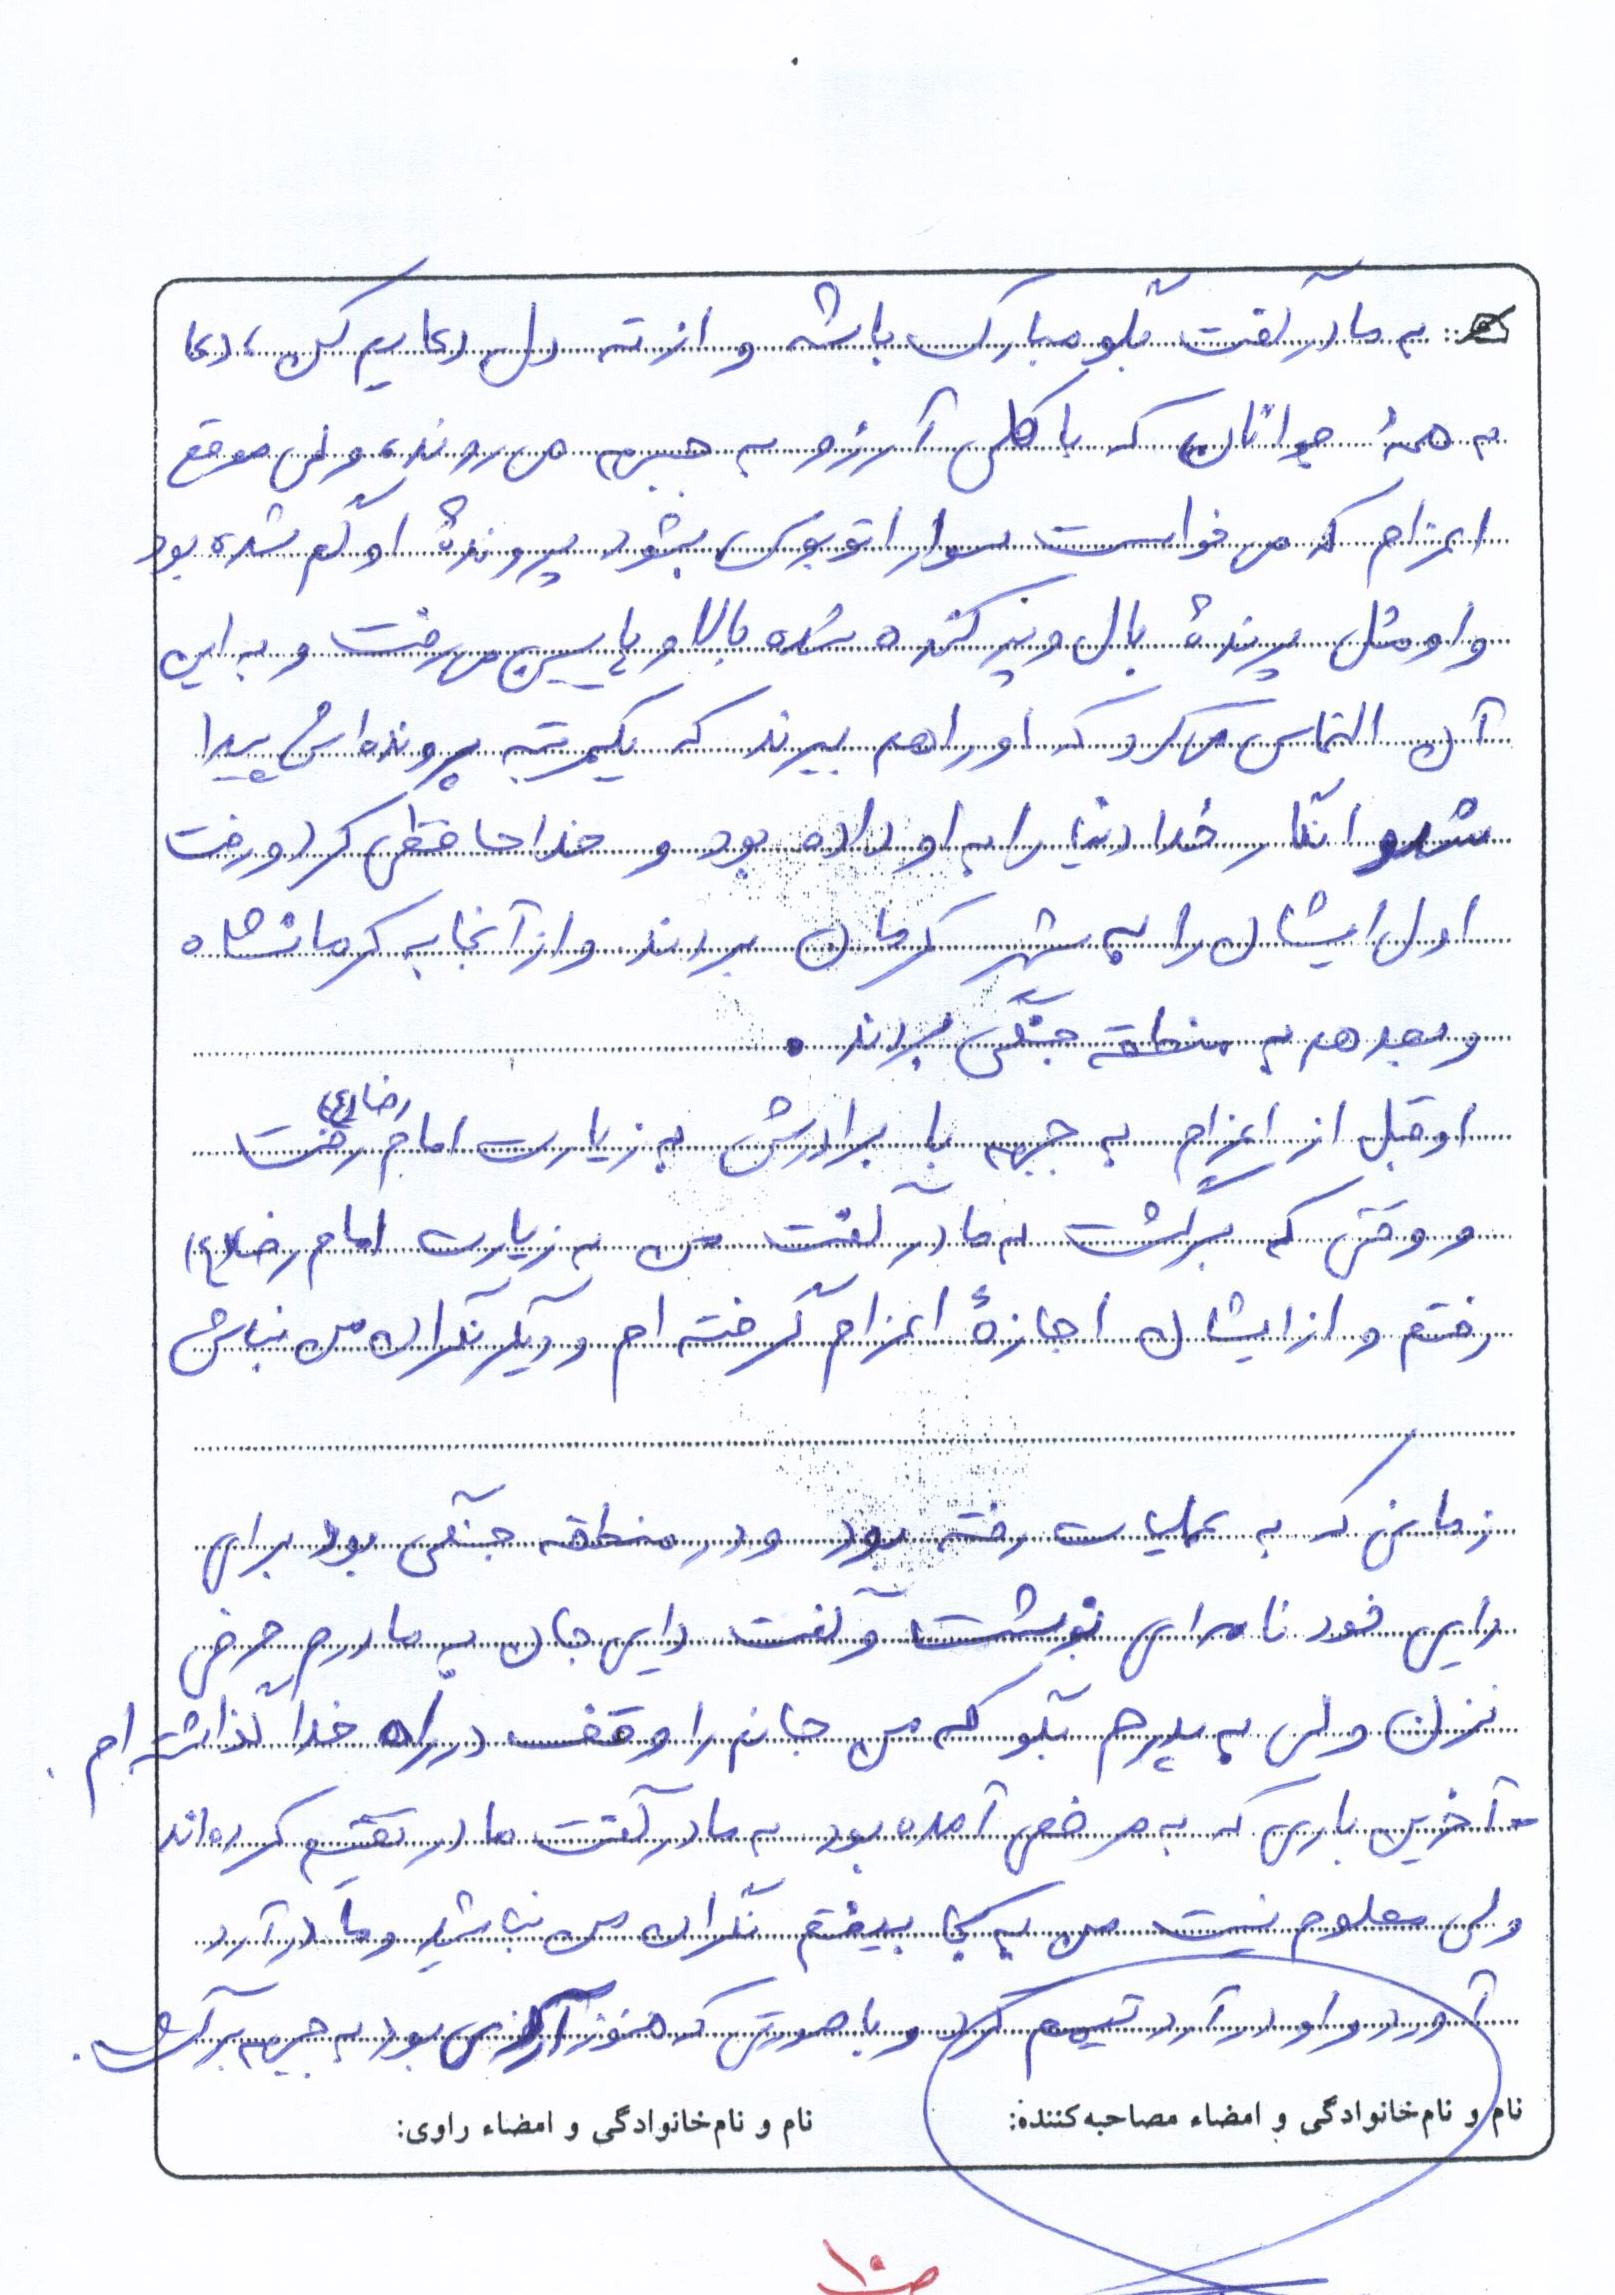 به مادر گفت بگو مبارک باشه و از ته دل دعایم کن، دعا
به همهٔ جوانان که با کلی آرزو به جبهه می روند، ولی موقع
اعزام که می خواست سوار اتوبوس بشود پروندهٔ او گم شده بود
و او مثل پرندهٔ بال و پر کنده شده بالا و پایین می رفت و به این
آن التماس می کرد که او را هم ببرند که یکمرتبه پرونده اش پیدا
شد و انگار خدا دنیا را به او داده بود و خداحافظی کرد و رفت
اول ایشان را به شهر کرمان بردند و از آنجا به کرمانشاه
و بعد هم به منطقه جنگی بردند.
او قبل از اعزام به جبهه با برادرش به زیارت امام رضا(ع) رفت
و وقتی که برگشت به مادر گفت من به زیارت امام رضا(ع)
رفتم و از ایشان اجازهٔ اعزام گرفته ام و دیگر نگران من نباش
زمانی که به عملیات رفته بود و در منطقه جنگی بود برای
دایی خود نامه ای نوشت و گفت دایی جان به مادرم حرفی
نزن ولی به پدرم بگو که من جانم را وقف در راه خدا گذاشته ام.
- آخرین باری که به مرخصی آمده بود به مادر گفت ما در تقسیم کرده اند
ولی معلوم نیست من به کجا بیفتم نگران من نباشید و مادر آرد
آورد و او در آرد تیمم کرد و با صورتی که هنوز آردی بود به جبهه برگشت.
نام و نام‌خانوادگی و امضاء مصاحبه‌کننده:
نام و نام‌خانوادگی و امضاء راوی:
ص ۱۰